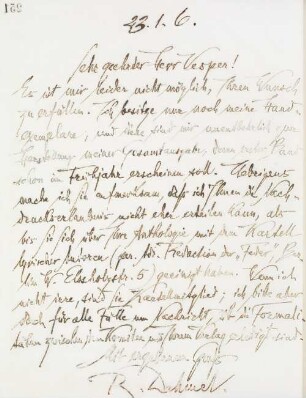 152
23.1.6.
Sehr geehrter Herr Vesper!
Es ist mir leider nicht möglich, Ihren Wunsch
zu erfüllen. Ich besitze nur noch meine Hand-
exemplare, und diese sind mir unentbehrlich
meiner Gesamtausgabe, deren
schon im Frühjahr erscheinen soll. Uebrigens
mache ich Sie aufmerksam, daß ich Ihnen die Nach-
druckserlaubnis nicht eher erteilen kann, als
bis Sie sich über Ihre Anthologie mit dem Kartell
lyrischer Autoren (per. Adr. Redaktion der
Elssholzstr. 5 geeinigt haben. Wenn ich
nicht irre, sind Sie Kartellmitglied; ich bitte aber
doch für alle Fälle um Nachricht, ob die Formali-
täten zwischen dem Kartell und Ihrem Verlag erledigt sind.
Mit ergebenem Gruß
R. Dehmel.